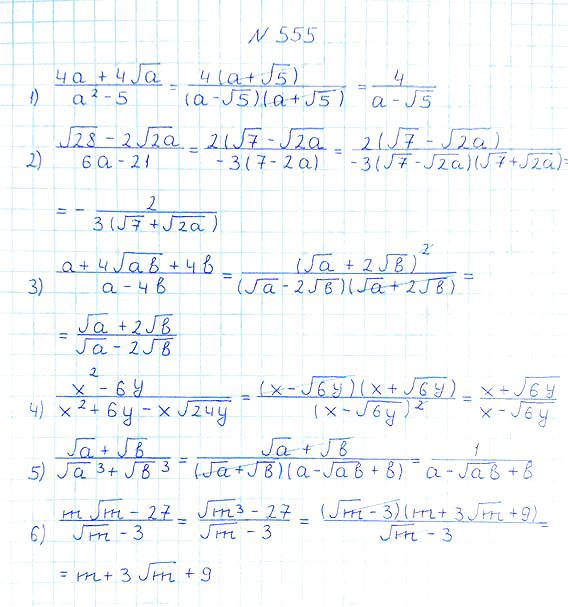 N 555
1) (4a + 4√a)/(a² - 5) = (4(a + √5))/((a - √5)(a + √5)) = 4/(a - √5)
2) (√28 - 2√2a)/(6a - 21) = (2(√7 - √2a)/(-3(7 - 2a)) = (2(√7 - √2a))/(-3(√7 - √2a)(√7 + √2a)) =
= - 2/(3(√7 + √2a))
3) (a + 4√ab + 4b)/(a - 4b) = (√a + 2√b)²/((√a - 2√b)(√a + 2√b)) =
= (√a + 2√b)/(√a - 2√b)
4) (x² - 6y)/(x² + 6y - x√24y) = ((x - √6y)(x + √6y))/(x - √6y)² = (x + √6y)/(x - √6y)
5) (√a + √b)/(√a³ + √b³) = (√a + √b)/((√a + √b)(a - √ab + b)) = 1/(a - √ab + b)
6) (m√m - 27)/(√m - 3) = (√m³ - 27)/(√m - 3) = ((√m - 3)(m + 3√m + 9))/(√m - 3) =
= m + 3√m + 9